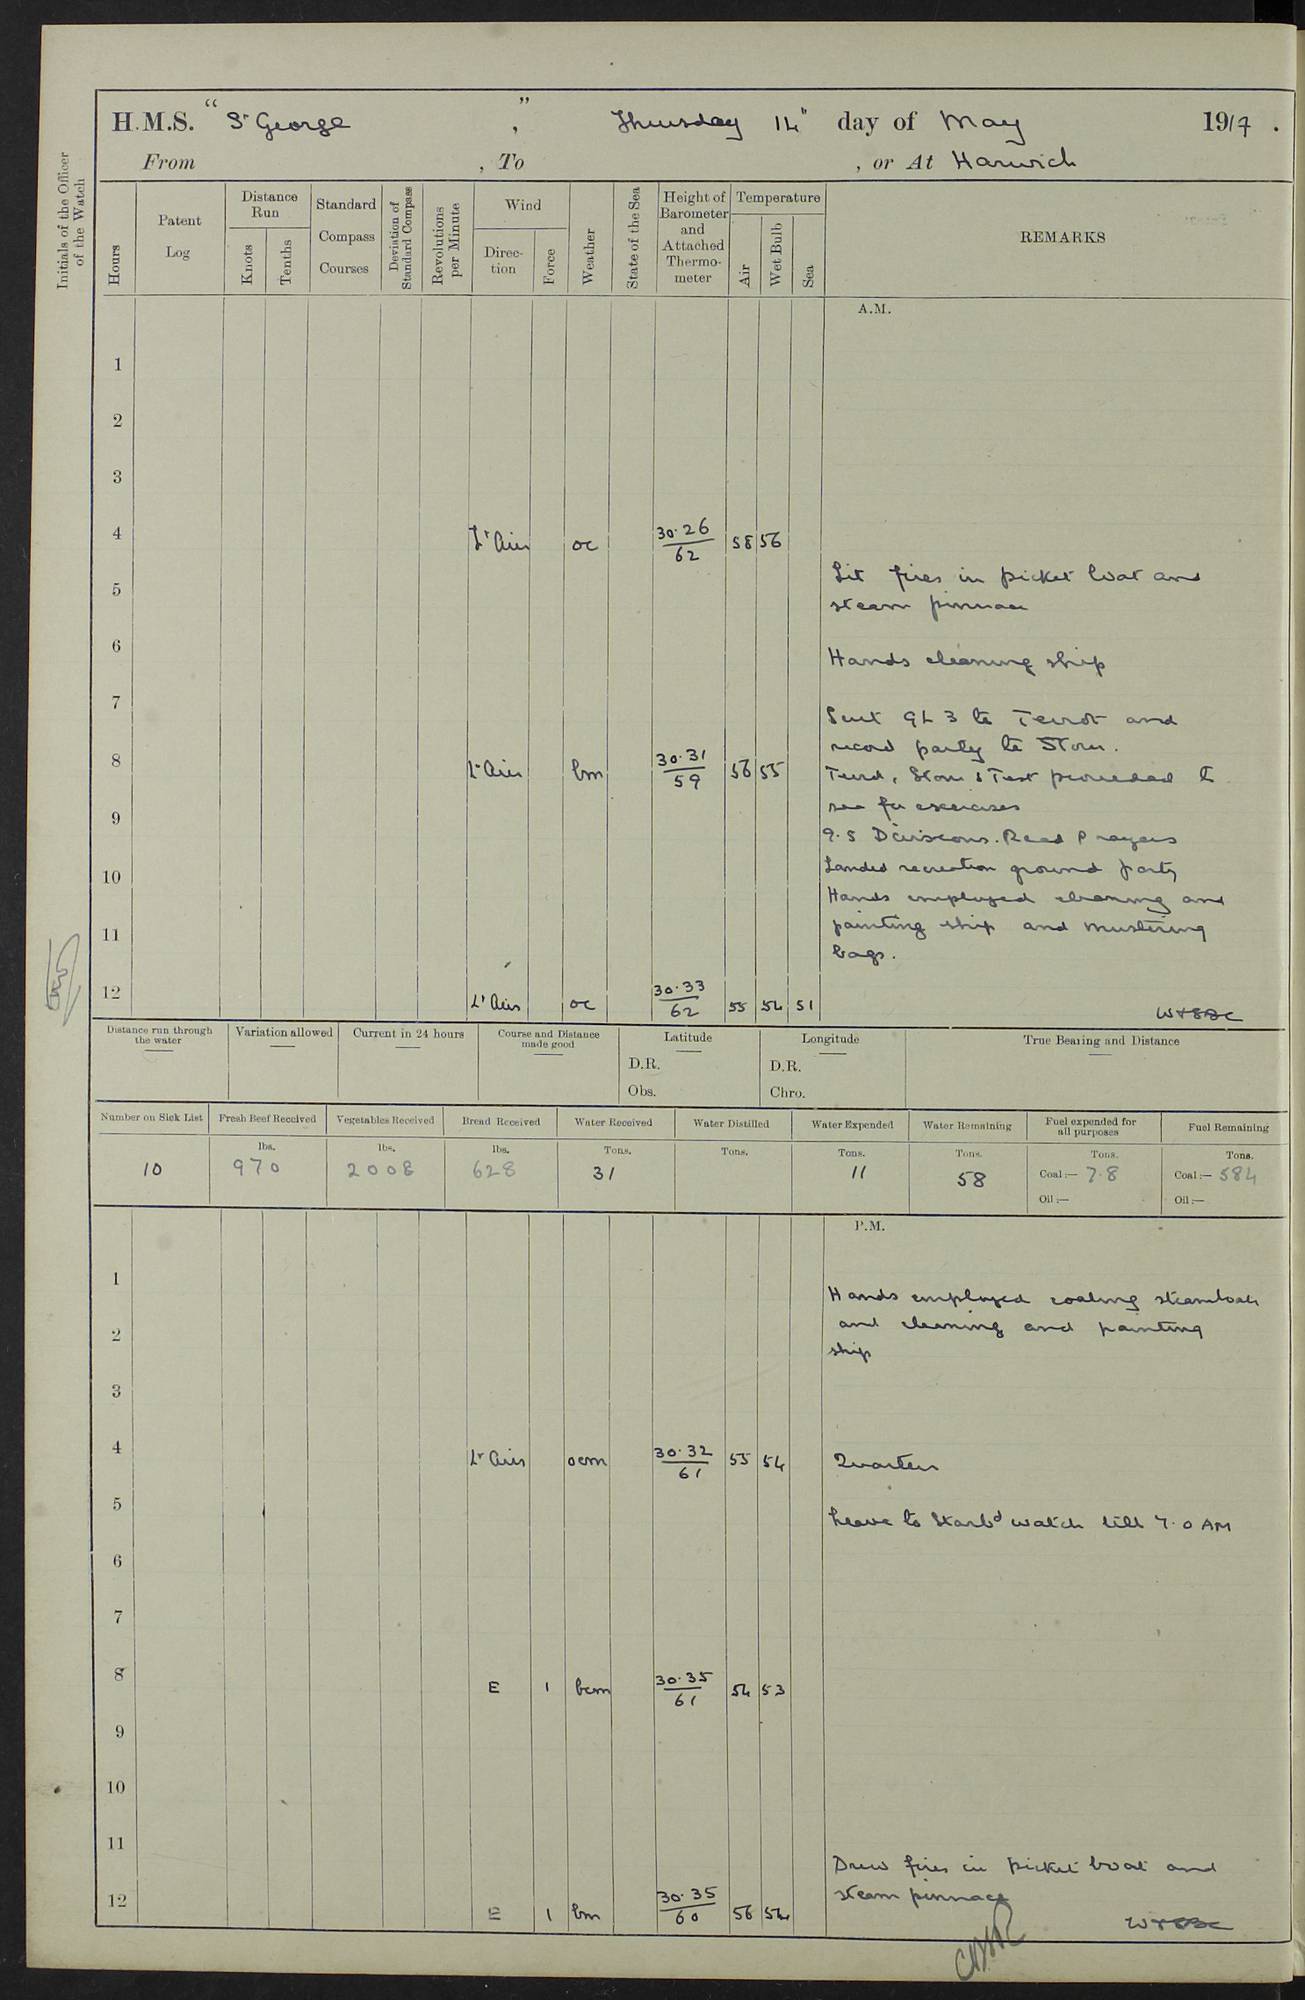 H.M.S. "St George", Thursday 14th day of May 1914.
From , To , or At Harwich
Initials of the Officer of the Watch
Hours
Patent Log
Distance Run
Knots
Tenths
Standard Compass Courses
Deviation of Standard Compass
Revolutions per Minute
Wind
Direction
Force
Weather
State of the Sea
Height of Barometer and Attached Thermometer
Temperature
Air
Wet Bulb
Sea
REMARKS
A.M.
1
2
3
4 Lt Airs oc 30.26/62 58 56
Lit fires in picket boat and
5
steam pinnace
6
Hands cleaning ship
7
Sent GL 3 to Teviot and
record party to Stour.
8 Lt Airs bm 30.31/59 56 55
Stour & Test proceeded to
sea for exercises
9
9.5 Divisions. Read Prayers
Landed recreation ground party
10
Hands employed cleaning and
painting ship and mustering
11
bags.
12 Lt Airs oc 30.33/62 55 54 51
Distance run through the water
Variation allowed
Current in 24 hours
Course and Distance made good
Latitude
D.R.
Obs.
Longitude
D.R.
Chro.
True Bearing and Distance
Number on Sick List
Fresh Beef Received
Vegetables Received
Bread Received
Water Received
Water Distilled
Water Expended
Water Remaining
Fuel expended for all purposes
Fuel Remaining
lbs. lbs. lbs. Tons. Tons. Tons. Tons. Tons. Tons.
10 970 2008 628 31 11 58 Coal:— 7.8 Coal:— 584
Oil:— Oil:—
P.M.
1
Hands employed coaling steamboats
2 and cleaning and painting
ship
3
4 Lt Airs ocm 30.32/61 55 54 Quarters
5
Leave to Starbd watch till 7.0 AM
6
7
8 E 1 bcm 30.35/61 54 53
9
10
11
Drew fires in picket boat and
12 E 1 bm 30.35/60 56 54 steam pinnace